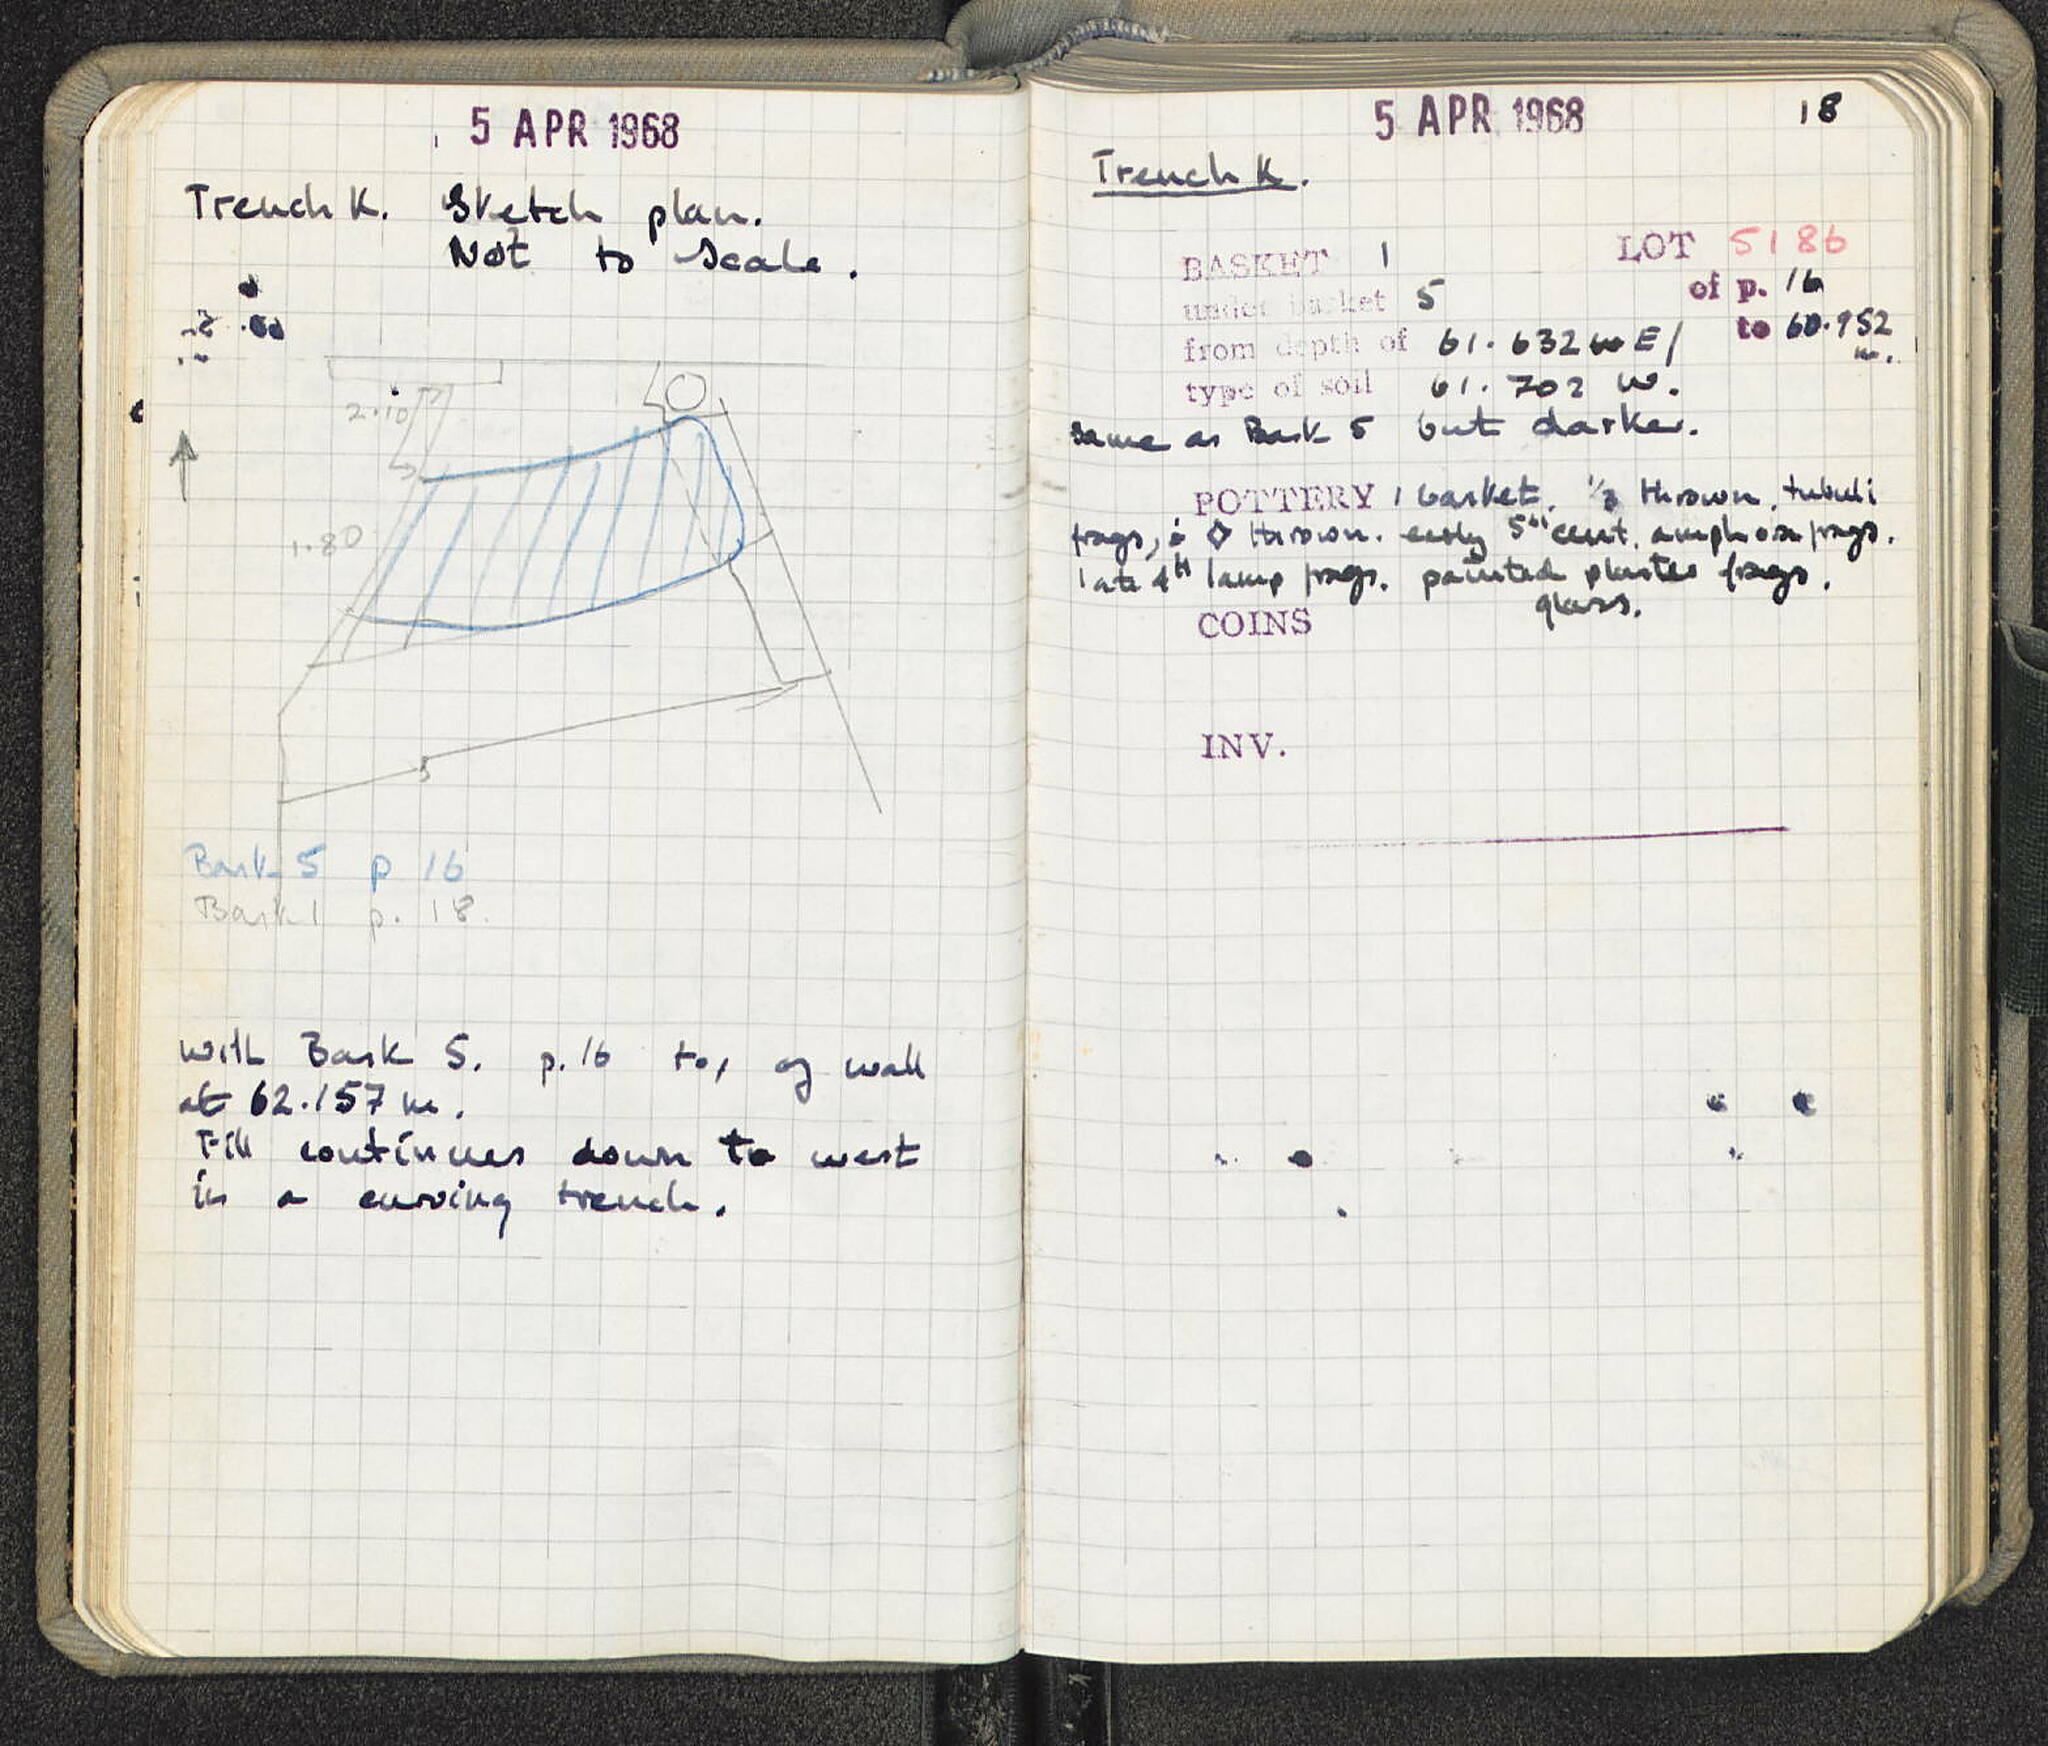 5 APR 1968
Trench K. Sketch plan.
Not to Scale.
2.10
1.80
Bask 5 p 16
Bask 1 p. 18.
with Bask 5. p.16 top of wall
at 62.157 m.
Fill continues down to west
in a curving trench.
5 APR 1968
18
Trench K.
BASKET 1 LOT 5186
under basket 5 of p. 16
from depth of 61.632 m E/ to 60.952 m.
type of soil 61.702 W.
same as Bask 5 but darker.
POTTERY 1 basket. 1/2 thrown. tubuli
frags, thrown. early 5th cent. amphora frags.
late 4th lamp frags. painted plaster frags.
glass.
COINS
INV.